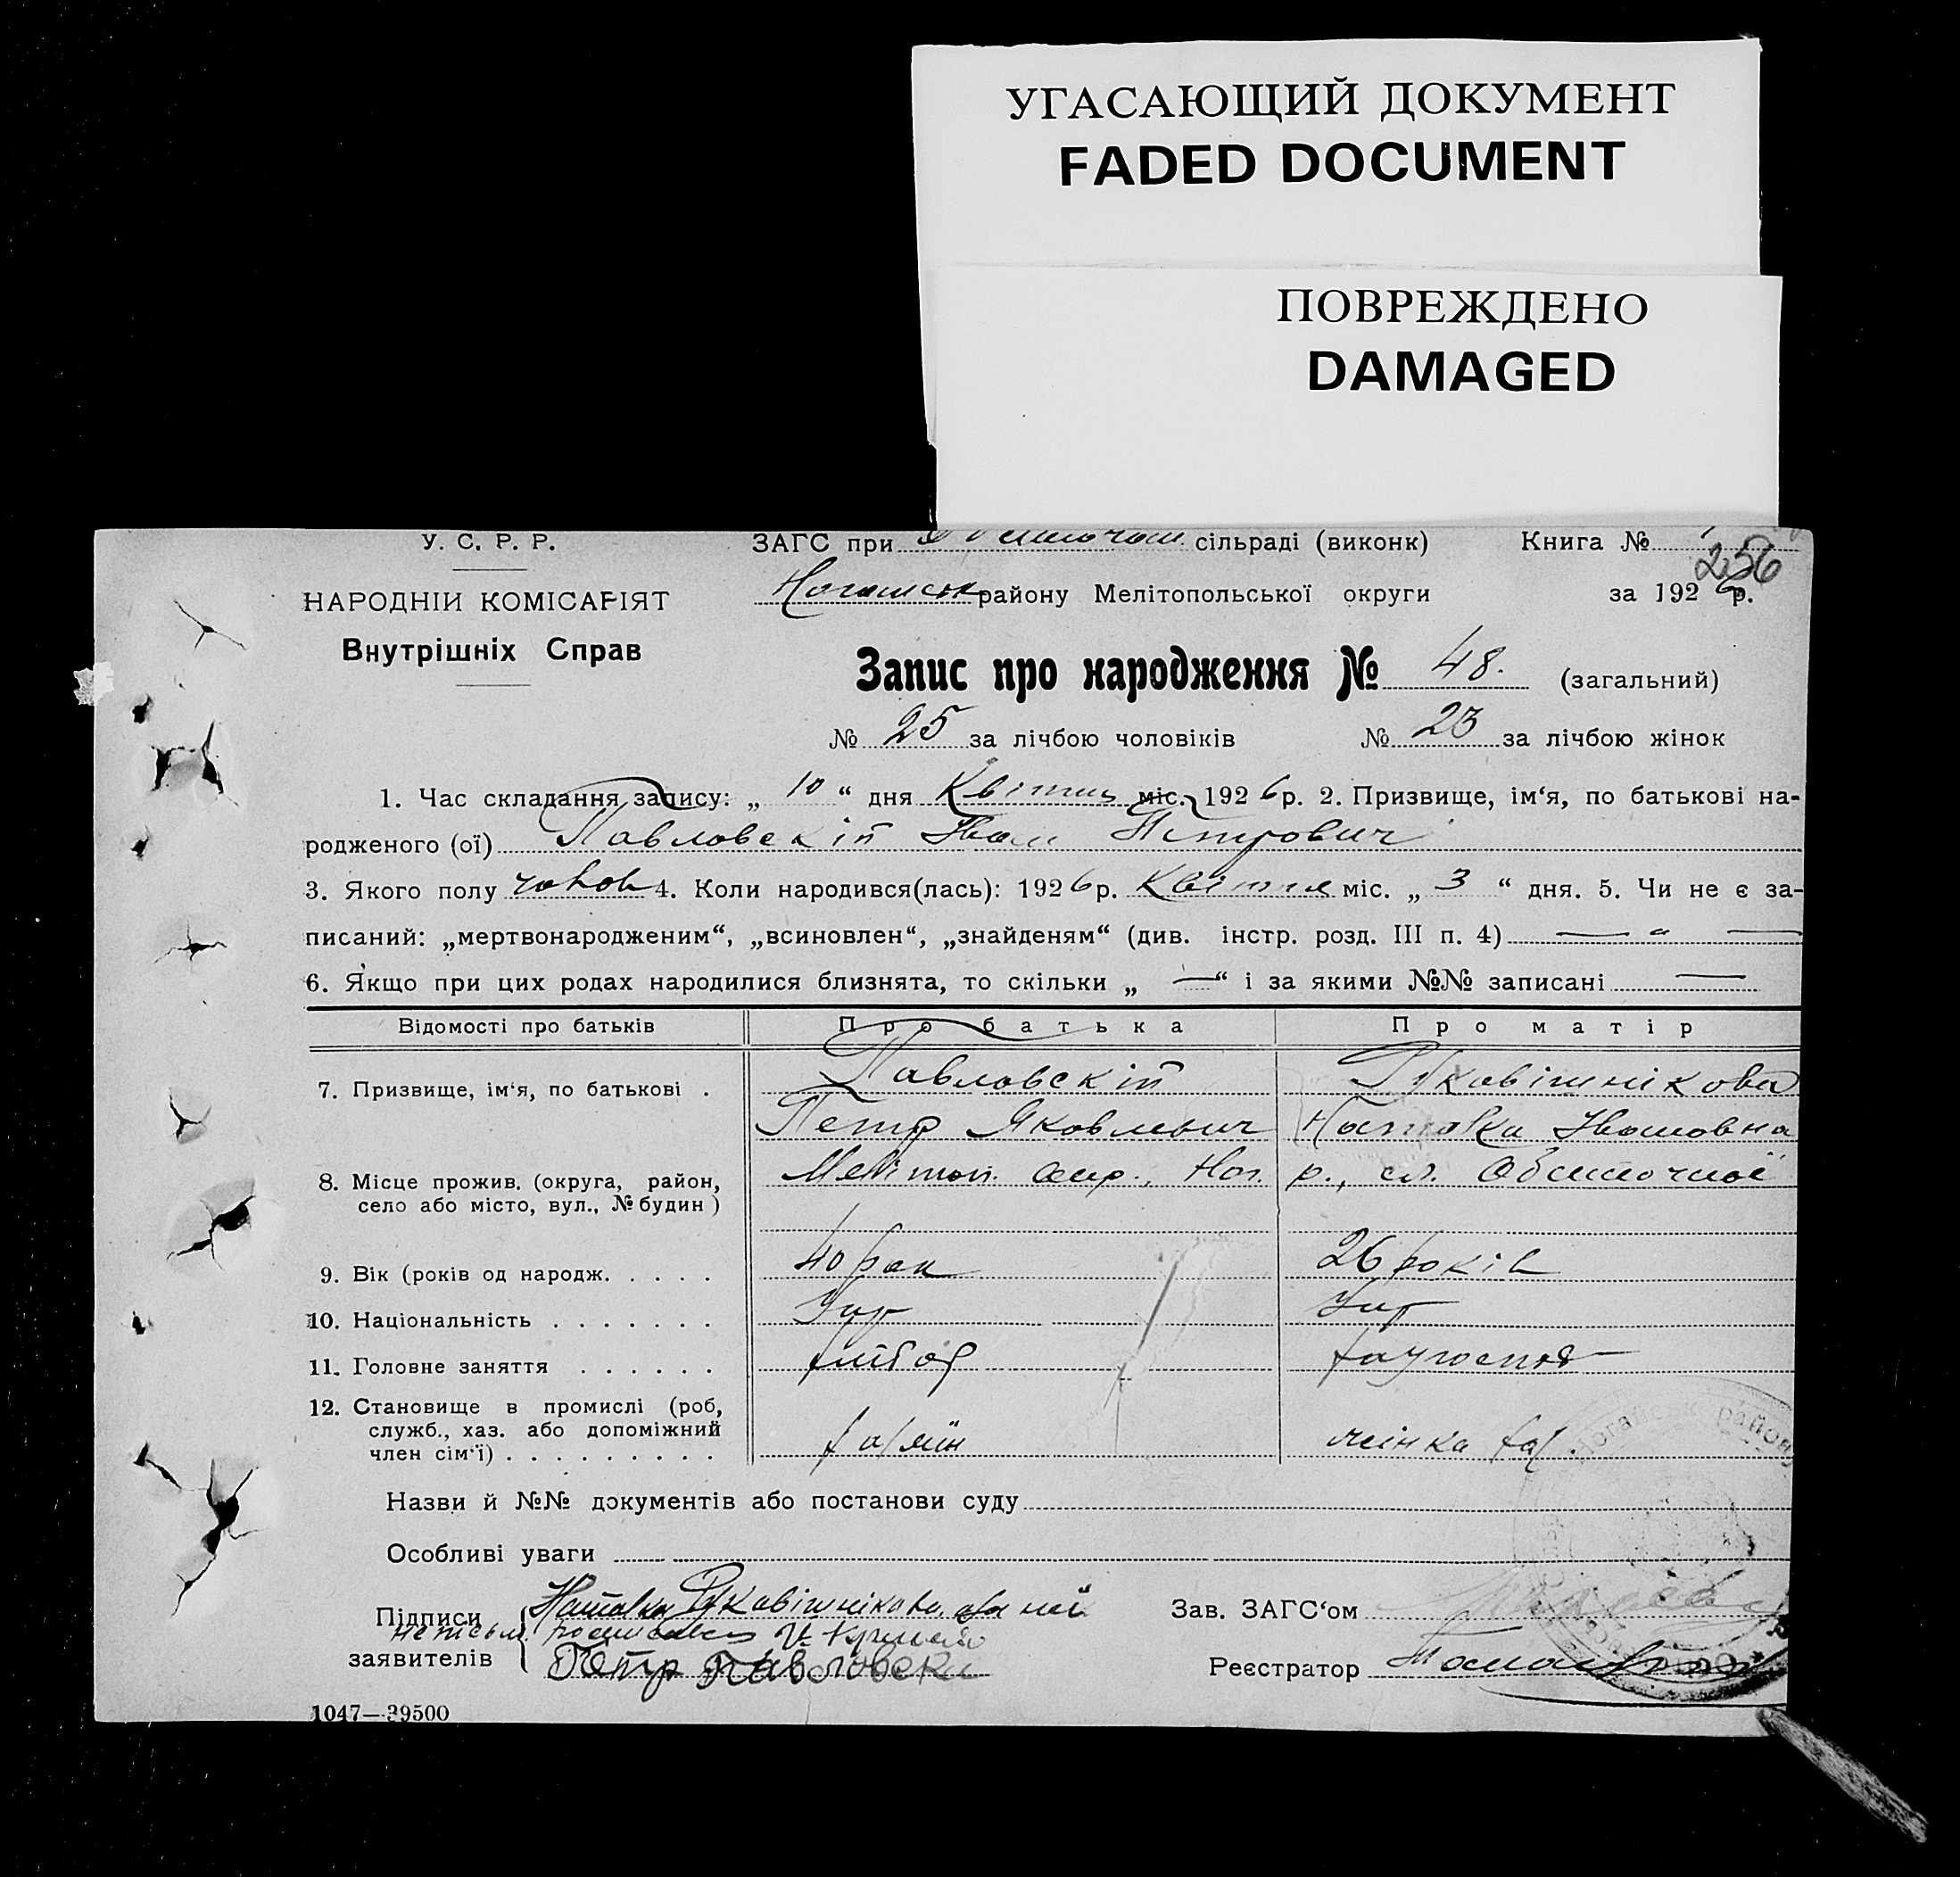 УГАСАЮЩИЙ ДОКУМЕНТ
FADED DOCUMENT
ПОВРЕЖДЕНО
DAMAGED
У. С. Р. Р. ЗАГС при сільраді (виконк) Книга №
256
НАРОДНІИ КОМІСАРІЯТ Ногайськ району Мелітопольської округи за 1926 р.
Внутрішніх Справ
Запис про народження № 48. (загальний)
№ 25 за лічбою чоловіків № 23 за лічбою жінок
1. Час складання запису: „ 10 “ дня Квітня міс. 1926 р. 2. Призвище, ім‘я, по батькові на-
родженого (ої) Павловскій Иван Петрович
3. Якого полу чолов 4. Коли народився(лась): 1926 р. Квітня міс. „ 3 “ дня. 5. Чи не є за-
писаний: „мертвонародженим“, „всиновлен“, „знайденям“ (див. інстр. розд. III п. 4) — „ —
6. Якщо при цих родах народилися близнята, то скільки „ — “ і за якими №№ записані —
Відомості про батьків Про батька Про матір
7. Призвище, ім‘я, по батькові . Павловскій Рукавішнікова
Петр Яковлевич Наталка Ивановна
8. Місце прожив. (округа, район, Мелітоп. окр., Ног. р., сл. Обиточної
село або місто, вул., № будин )
9. Вік (років од народж. . . . . 40 рок 26 років
10. Національність . . . . . . . Укр Укр
11. Головне заняття . . . . . . хлібор
12. Становище в промислі (роб,
служб., хаз. або допоміжний
член сім‘ї) . . . . . . . . . . хазяїн жінка хаз.
Назви й №№ документів або постанови суду
Особливі уваги
Підписи Наталка Рукавішнікова, а за неї Зав. ЗАГС‘ом
неписьм. росписався
заявителів Петр Павловски Реєстратор
1047—39500